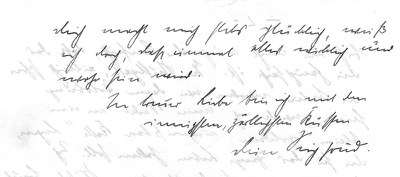 dich macht mich stets glücklich, weiß
ich doch, daß einmal alles wirklich und
wahr sein wird.
In treuer Liebe bin ich mit den
innigsten, zärtlichsten Küssen
Dein